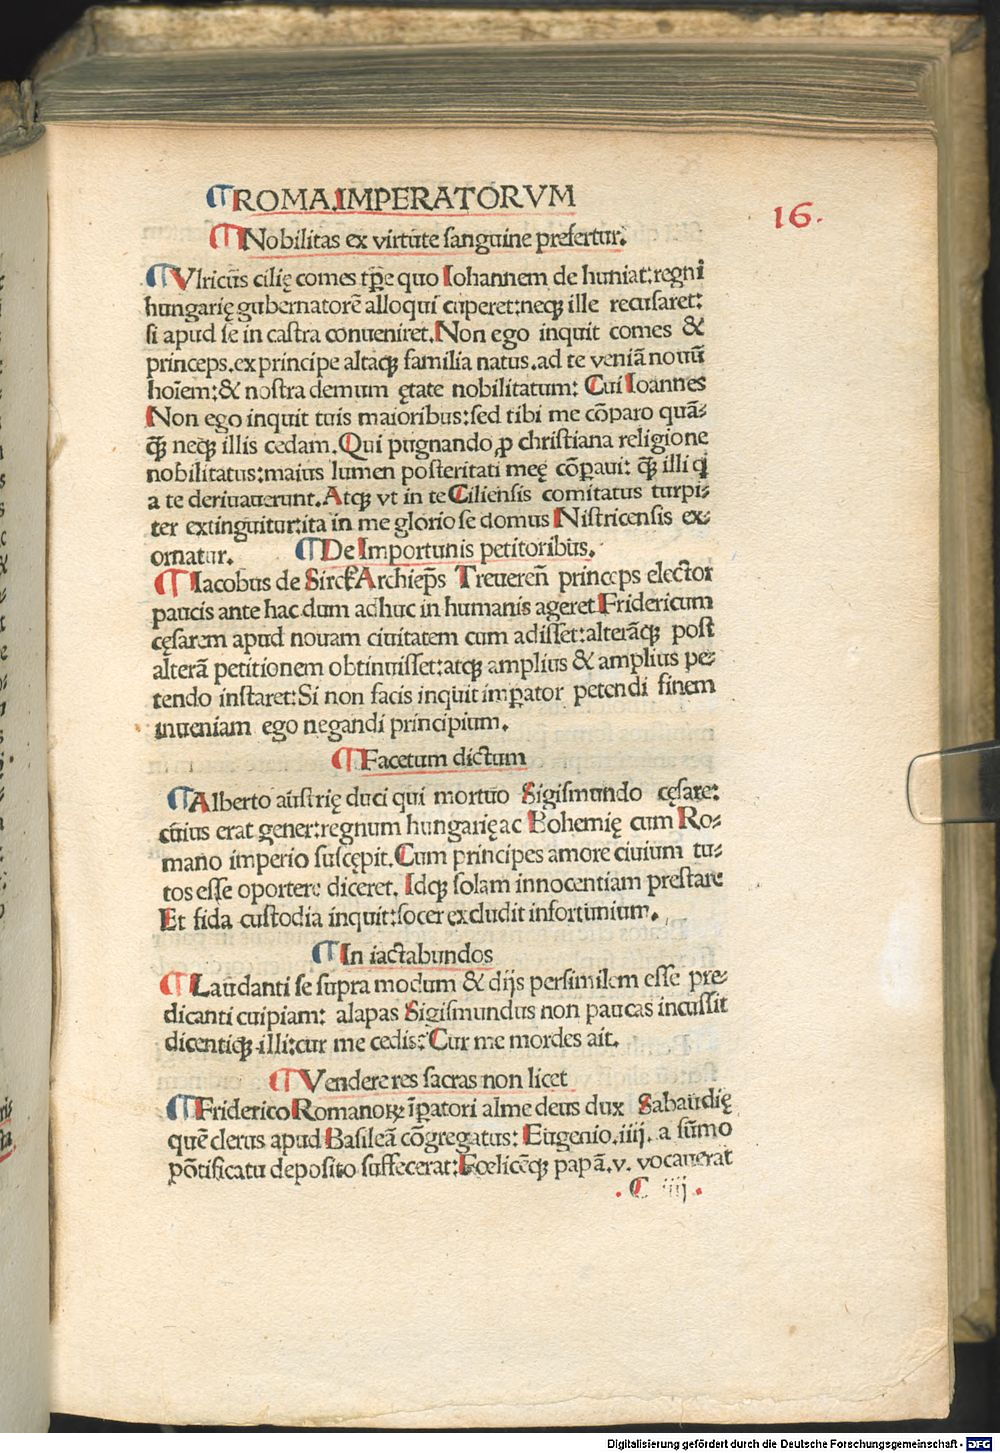 ¶ROMA.IMPERATORVM
16.
¶Nobilitas ex virtute sanguine prefertur.
¶Vlricus cilię comes tp̄e quo Iohannem de huniat:regni
hungarię gubernatorē alloqui cuperet:neqꝫ ille recusaret:
si apud se in castra conueniret.Non ego inquit comes &
princeps.ex principe altaqꝫ familia natus.ad te veniā nouū
hoīem:& nostra demum ętate nobilitatum: Cui Ioannes
Non ego inquit tuis maioribus:sed tibi me cōparo quā⸗
qꝫ̄ neqꝫ illis cedam.Qui pugnando ꝓ christiana religione
nobilitatus:maius lumen posteritati meę cōparaui: qꝫ̄ illi q
a te deriuauerunt.Atqꝫ vt in te Ciliensis comitatus turpi⸗
ter extinguitur:ita in me gloriose domus Nistricensis ex⸗
ornatur. ¶De Importunis petitoribus.
¶Iacobus de Sirck Archiep̄s Treuereñ princeps elector
paucis ante hac dum adhuc in humanis ageret Fridericum
cęsarem apud nouam ciuitatem cum adisset:alterāqꝫ post
alterā petitionem obtinuisset:atqꝫ amplius & amplius pe⸗
tendo instaret:Si non facis inquit imꝑator petendi finem
inueniam ego negandi principium.
¶Facetum dictum
¶Alberto austrię duci qui mortuo Sigismundo cęsare:
cuius erat gener:regnum hungarię ac Bohemię cum Ro⸗
mano imperio suscępit.Cum principes amore ciuium tu⸗
tos esse oportere diceret. Idqꝫ solam innocentiam prestare
Et fida custodia inquit:socer excludit infortunium.
¶In iactabundos
¶Laudanti se supra modum & dijs persimilem esse pre⸗
dicanti cuipiam: alapas Sigismundus non paucas incussit
dicentiqꝫ illi:cur me cedis: Cur me mordes ait.
¶Vendere res sacras non licet
¶Friderico Romanoꝝ īꝑatori alme deus dux Sabaudię
quē clerus apud Basileā cōgregatus: Eugenio.iiij. a sūmo
pōtificatu deposito suffecerat:Fœlicēqꝫ papā.v. vocauerat
.C iiij.
Digitalisierung gefördert durch die Deutsche Forschungsgemeinschaft - DFG